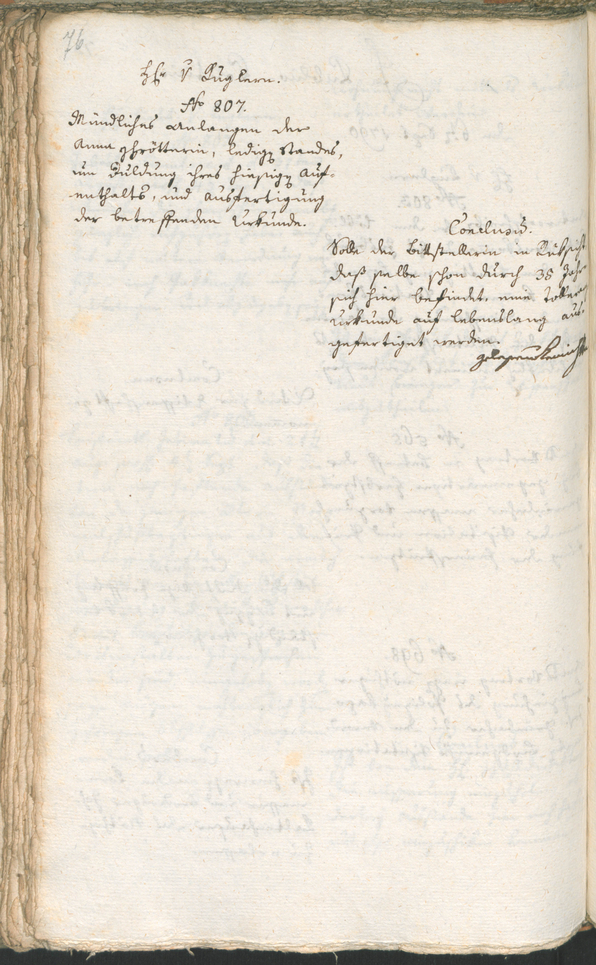 76
Hr v Kuglern.
No 807.
Mündliches Anlangen der
Anna Schrötterin, ledigen Standes,
um Duldung ihres hiesigen Auf-
enthalts, und Ausfertigung
der betreffenden Urkunde.
Conclusum.
Solle der Bittstellerin in Rüksicht
daß selbe schon durch 35 Jahre
sich hier befindet, eine Tolleranz
Urkunde auf lebenslang aus-
gefertiget werden.